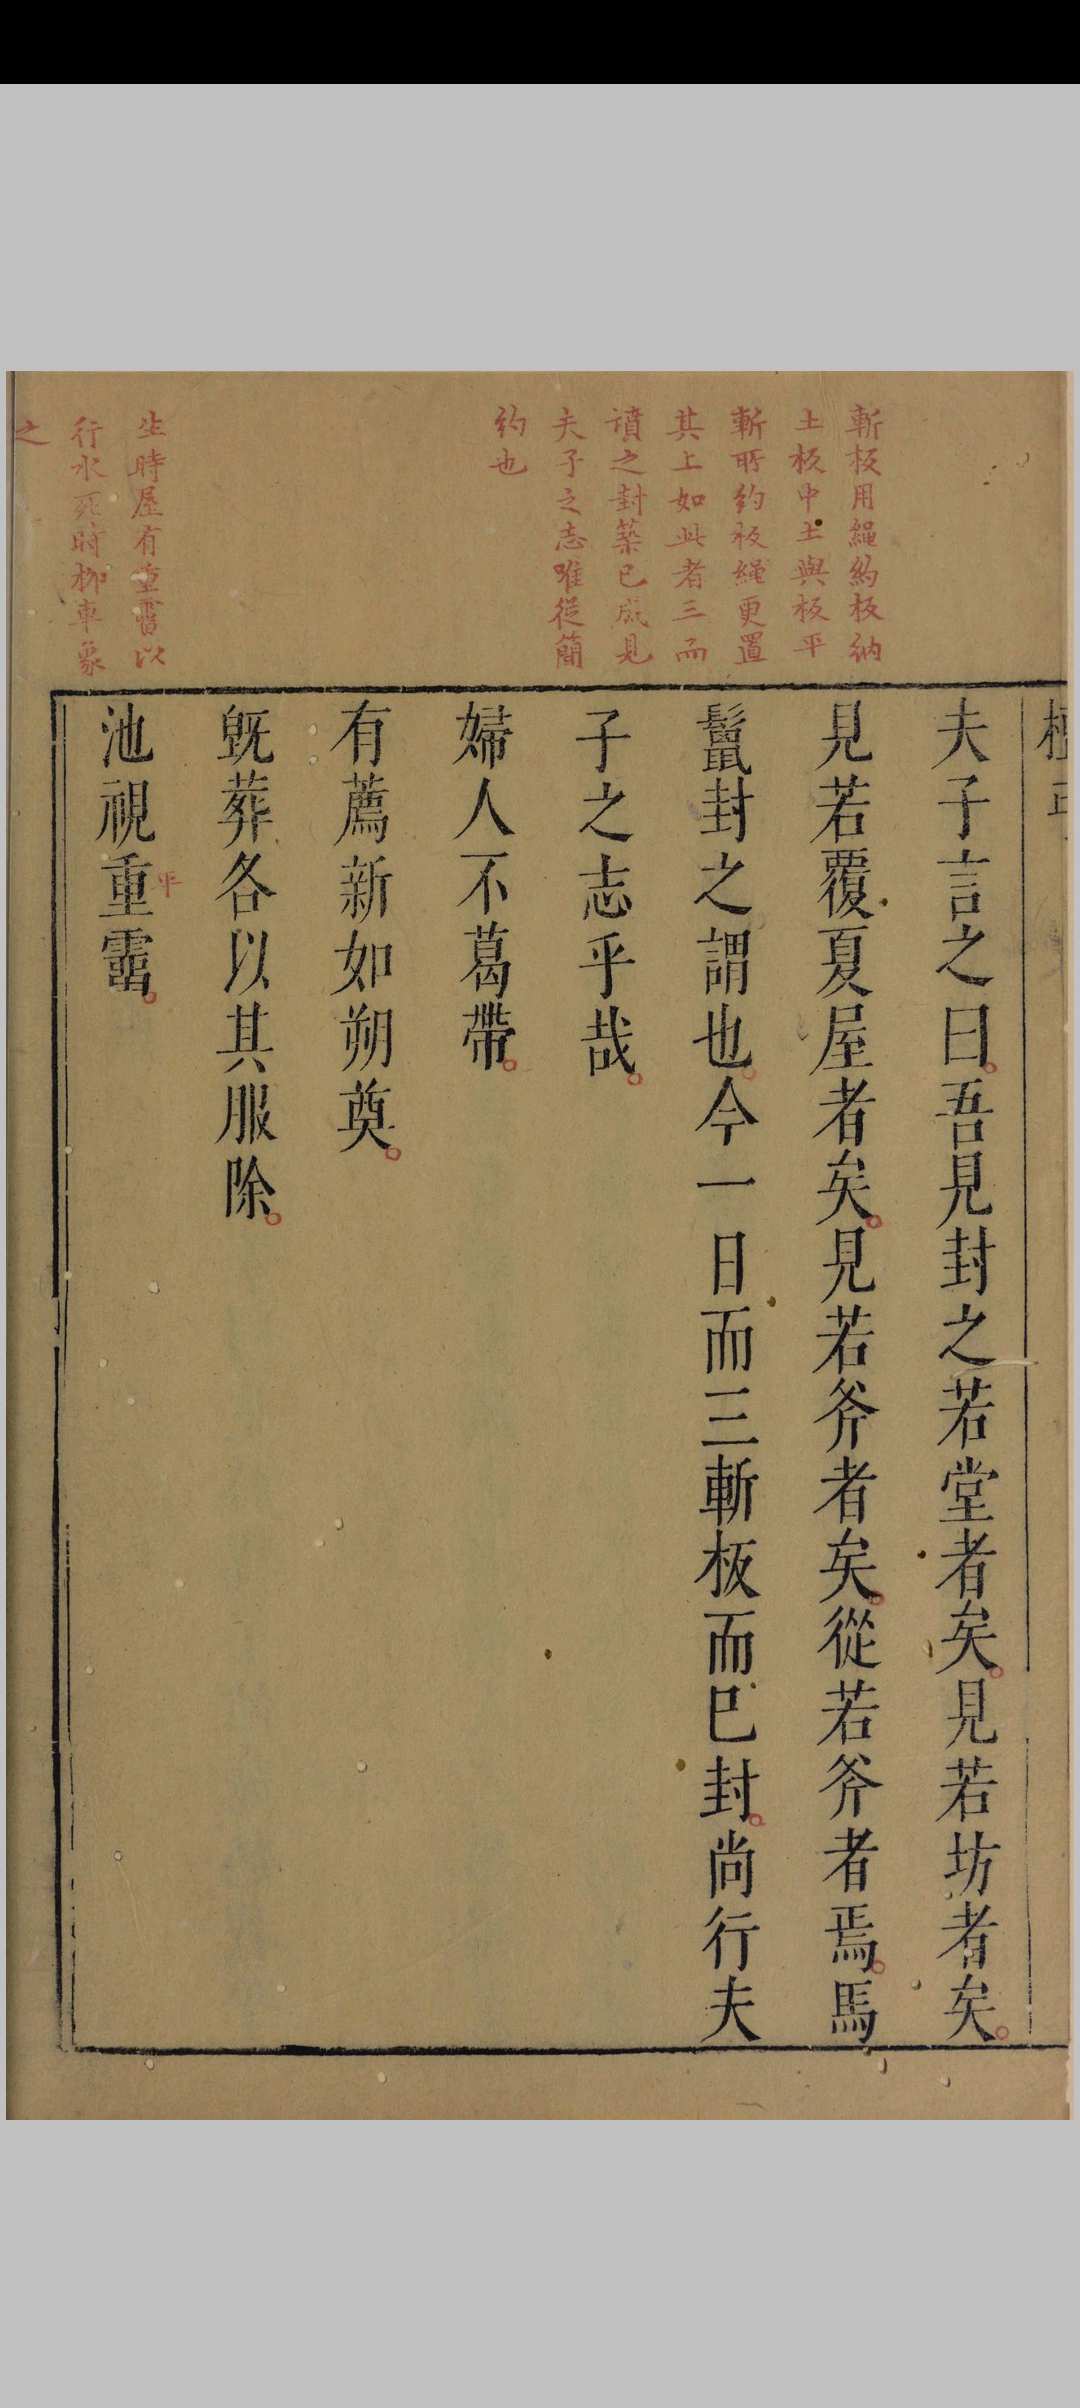 斬板用繩約板納
土板中土與板平
斬所約板繩更置
其上如此者三而
墳之封築已成見
夫子之志唯從簡
約也
生時屋有重霤以
行水死時柳車象
之
夫子言之曰吾見封之若堂者矣見若坊者矣
見若覆夏屋者矣見若斧者矣從若斧者焉馬
鬣封之謂也今一日而三斬板而已封尚行夫
子之志乎哉
婦人不葛帶
有薦新如朔奠
既葬各以其服除
池視重霤
平